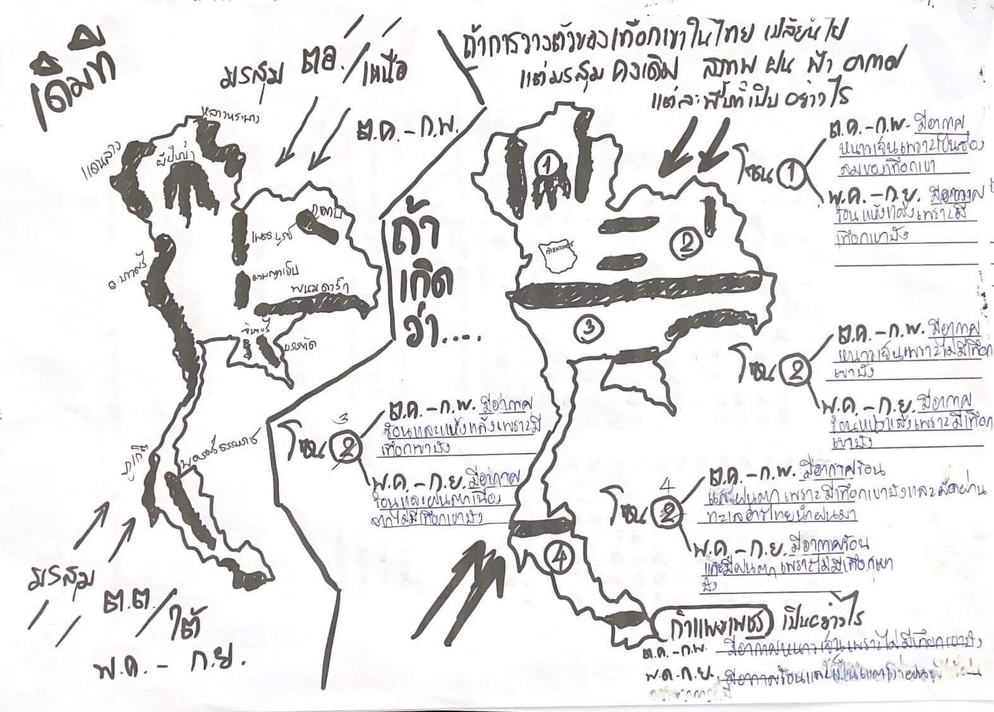 เดิมที
มรสุม ตอ./เหนือ
ต.ค. - ก.พ.
หลวงพระบาง
แดนลาว
ผีปันน้ำ
ภูพาน
เพชรบูรณ์
ดงพญาเย็น
พนมดงรัก
จันทบุรี
บรรทัด
ภูเก็ต
นครศรีธรรมราช
มรสุม
ต.ต./ใต้
พ.ค. - ก.ย.
ถ้า
เกิด
ว่า....
ถ้าการวางตัวของเทือกเขาในไทย เปลี่ยนไป
แต่มรสุม คงเดิม สภาพ ฝน ฟ้า อากาศ
แต่ละพื้นที่เป็น อย่างไร
1
2
3
4
กำแพงเพชร
โซน 1
ต.ค. - ก.พ. มีอากาศ
หนาวเย็นเพราะเป็นช่อง
ลมของเทือกเขา
พ.ค. - ก.ย. มีอากาศ
ร้อนแห้งแล้งเพราะมี
เทือกเขาบัง
โซน 2
ต.ค. - ก.พ. มีอากาศ
หนาวเย็นเพราะไม่มีเทือก
เขาบัง
พ.ค. - ก.ย. มีอากาศ
ร้อนแห้งแล้งเพราะมีเทือก
เขาบัง
3
โซน 2
ต.ค. - ก.พ. มีอากาศ
ร้อนและแห้งแล้งเพราะมี
เทือกเขาบัง
พ.ค. - ก.ย. มีอากาศ
ร้อนและฝนตกเนื่อง
จากไม่มีเทือกเขาบัง
4
โซน 2
ต.ค. - ก.พ. มีอากาศร้อน
และฝนตก เพราะมีเทือกเขาบังและพัดผ่าน
ทะเลอ่าวไทยนำฝนมา
พ.ค. - ก.ย. มีอากาศร้อน
และมีฝนตก เพราะไม่มีเทือกเขา
บัง
กำแพงเพชร เป็นอย่างไร
ต.ค. - ก.พ. มีอากาศหนาวเย็นเพราะไม่มีเทือกเขาบัง
พ.ค. - ก.ย. มีอากาศร้อนและ